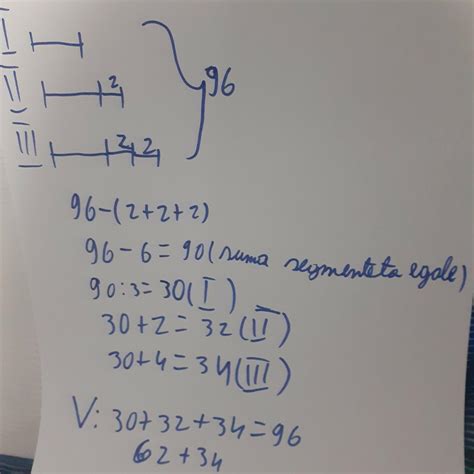 I
II 2
96
III 2 2
96-(2+2+2)
96-6=90(suma segmenteta egale)
90:3=30(I)
30+2=32(II)
30+4=34(III)
V: 30+32+34=96
62+34